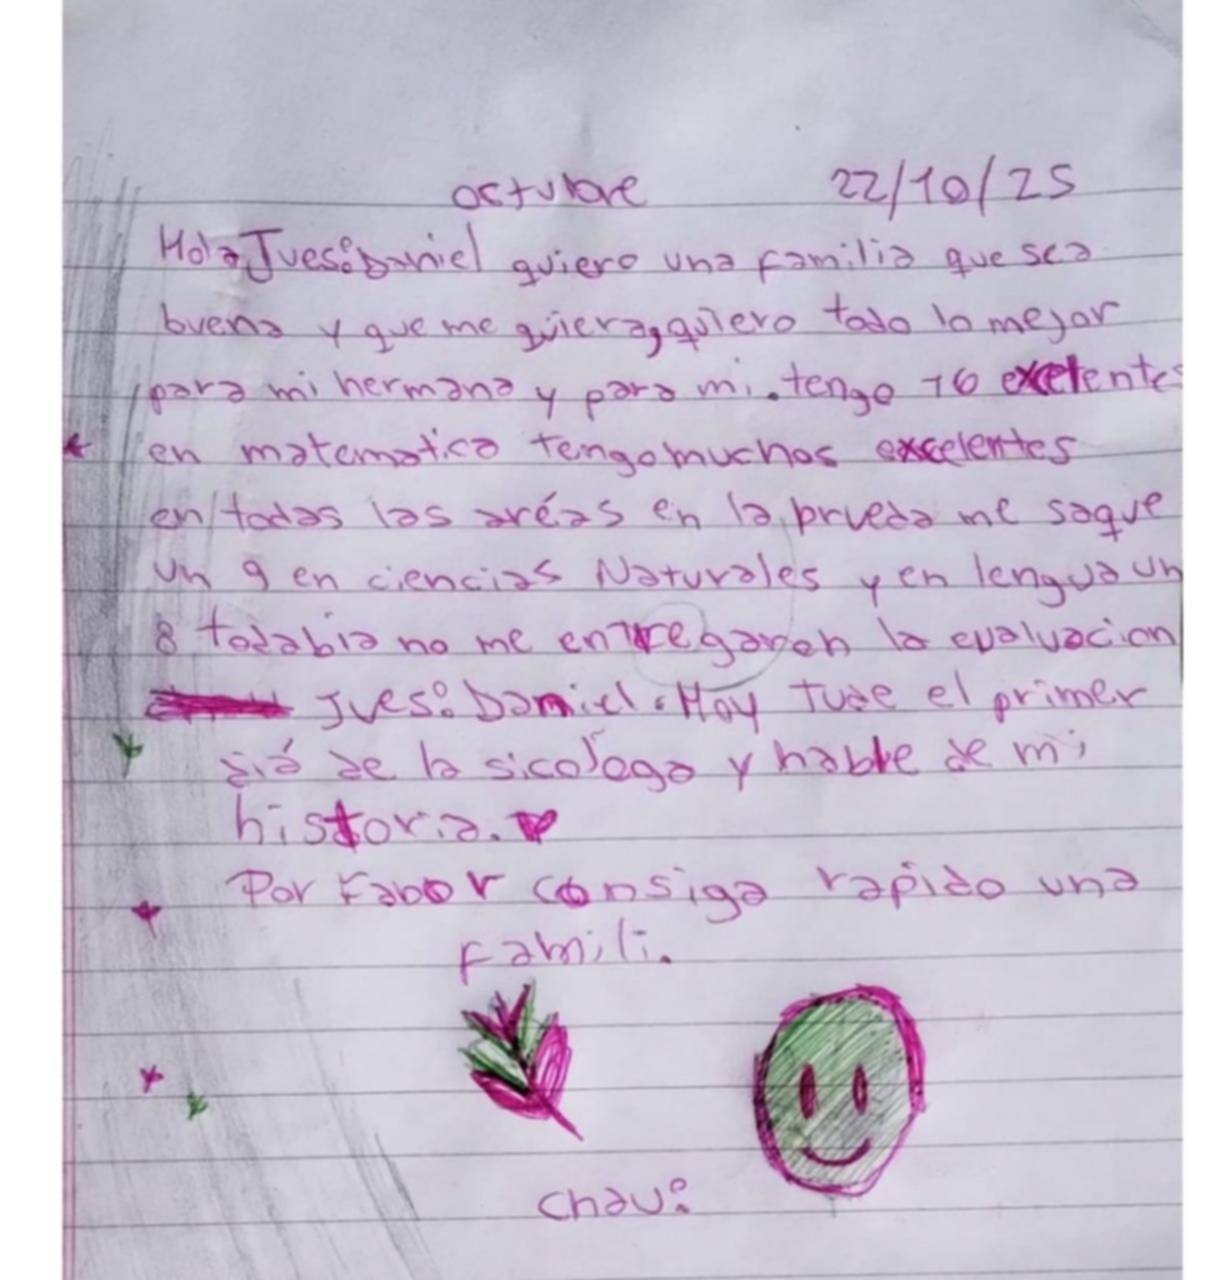 octubre 22/10/25
Hola Jues: Daniel quiero una familia que sea
buena y que me quiera, quiero todo lo mejor
para mi hermana y para mi. tengo 16 excelentes
en matematica tengo muchos excelentes
en todas las aréas en la prueda me saque
un 9 en ciencias Naturales y en lengua un
8 todabia no me entregaron la evaluacion
Jues: Daniel. Hoy tude el primer
diá de la sicologa y hable de mi
historia.
Por Fabor consiga rapido una
Famili.
chau: